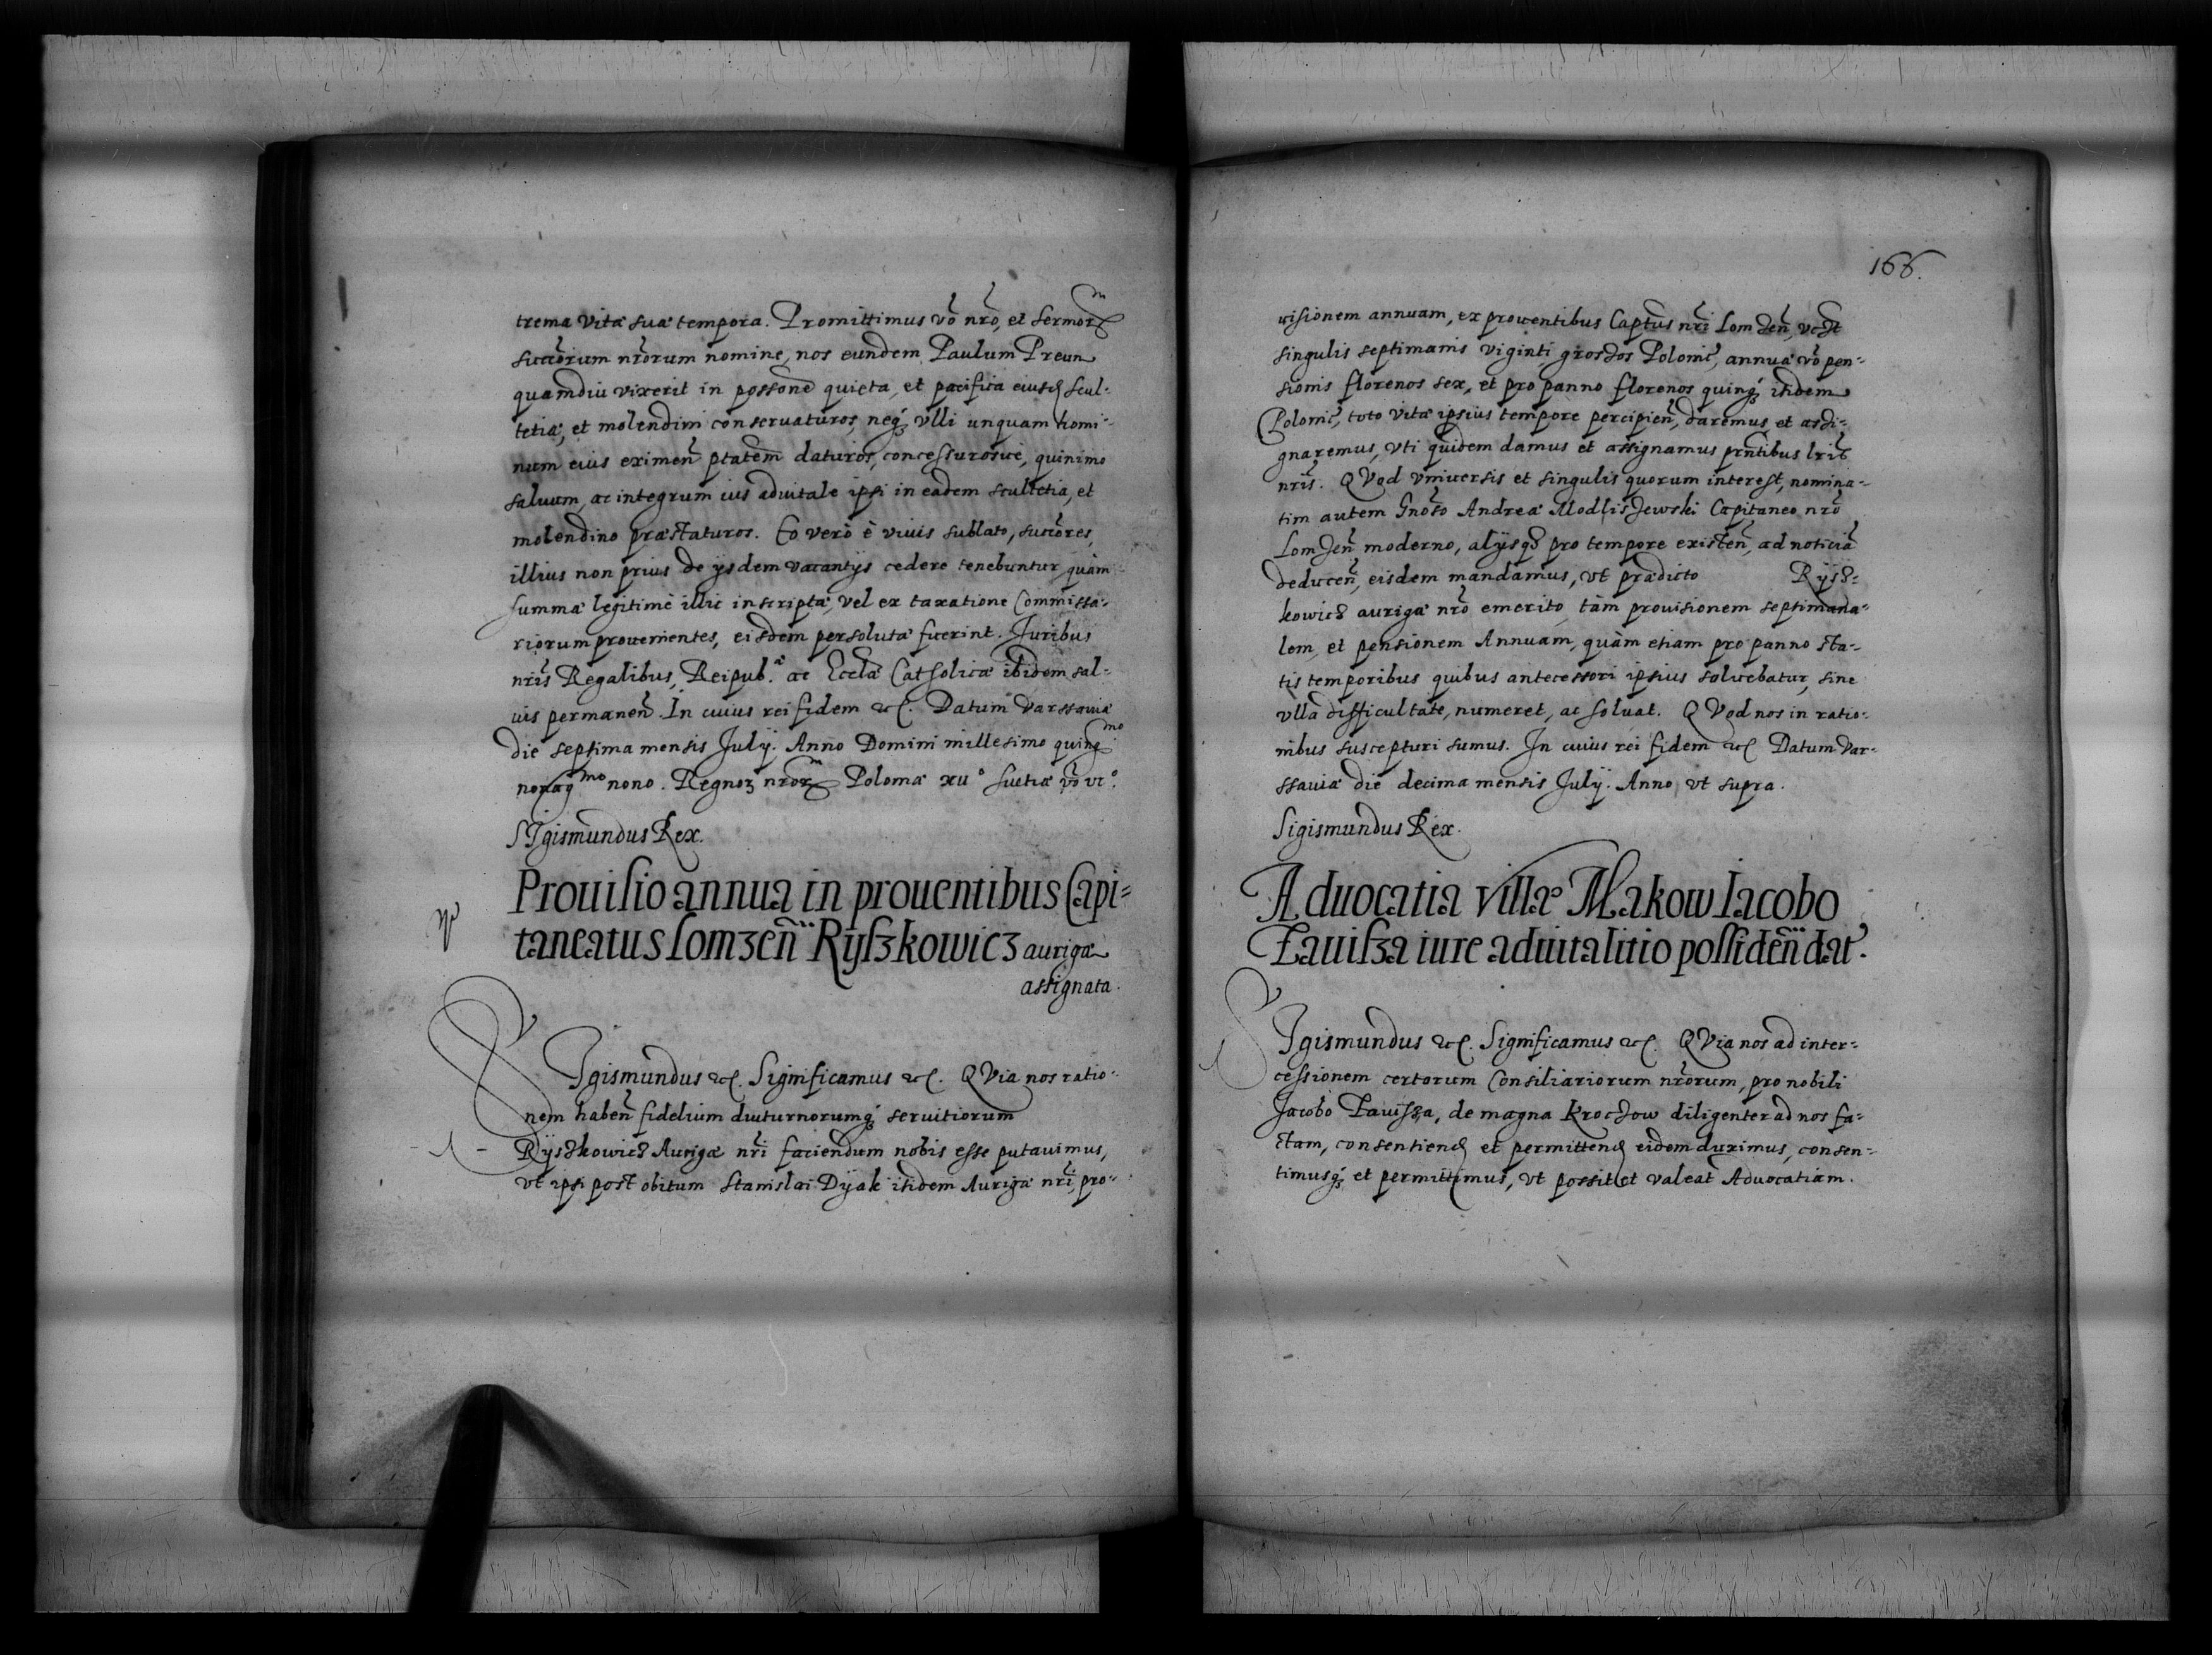 trema vitæ suæ tempora. Promittimus võ nrõ, et sermorũ
succõrum nrõrum nomine, nos eundem Paulum Preun
quamdiu vixerit in possone quieta, et pacifica eiusd scul-
tetiæ, et molendini conservaturos, neq; vlli unquam homi-
num eius eximeñ ptatem daturos, concessurosue, quinimo
saluum, ac integrum ius aduitale ipsi in eadem scultetia, et
molendino præstaturos. Eo verò è viuis sublato, succõres,
illius non prius de ijsdem vacantijs cedere tenebuntur, quàm
summæ legitimè illic inscriptæ, vel ex taxatione Commissa-
riorum prouenientes, eisdem persolutæ fuerint. Juribus
nrĩs Regalibus, Reipub.æ ac Ecclæ Catholicæ ibidem sal-
uis permaneñ. In cuius rei fidem etc. Datum Varssauiæ
die septima mensis Julij. Anno Domini millesimo quingmo
nonagmo nono. Regnoȝ nrorȝ Poloniæ xiio Suetiæ võ vio.
SIgismundus Rex.
Prouisio annua in prouentibus Capi=
taneatus Lomzeñ Rÿszkowicz aurigæ
assignata.
SIgismundus etc. Significamus etc. QVia nos ratio-
nem habeñ fidelium diuturnorumq; seruitiorum
Rÿszkowicz Aurigæ nrĩ faciendum nobis esse putauimus,
vt ipsi post obitum Stanislai Dÿak itidem Aurigæ nrĩ, pro-
166.
uisionem annuam, ex prouentibus Captus nrĩ Lomzeñ, vczt
singulis septimanis viginti grossos Polonic, annuæ võ pen-
sionis florenos sex, et pro panno florenos quinq; itidem
Polonic, toto vitæ ipsius tempore percipieñ, daremus, et assi-
gnaremus, vti quidem damus et assignamus prñtibus lrĩs
nrĩs. QVod vniuersis et singulis quorum interest, nomina-
tim autem Gnõso Andreæ Modliszewski Capitaneo nrõ
Lomzeñ moderno, alijsq; pro tempore existeñ, ad noticiã
deduceñ, eisdem mandamus, vt prædicto Rÿsz-
kowicz aurigæ nrõ emerito, tàm prouisionem septimana-
lem, et pensionem Annuam, quàm etiam pro panno sta-
tis temporibus quibus antecessori ipsius soluebatur, sine
vlla difficultate, numeret, ac soluat. QVod nos in ratio-
nibus suscepturi sumus. In cuius rei fidem etc. Datum Var-
ssauiæ die decima mensis Julij. Anno vt supra.
Sigismundus Rex.
Aduocatia villæ Makow Iacobo
Pauisza iure aduitalitio possideñ dat.
SIgismundus etc. Significamus etc. QVia nos ad inter-
cessionem certorum Consiliariorum nrõrum, pro nobili
Jacobo Pauisza, de magna Kroczow diligenter ad nos fa-
ctam, consentiend et permittend eidem duximus, consen-
timusq; et permittimus, vt possit et valeat Aduocatiam.